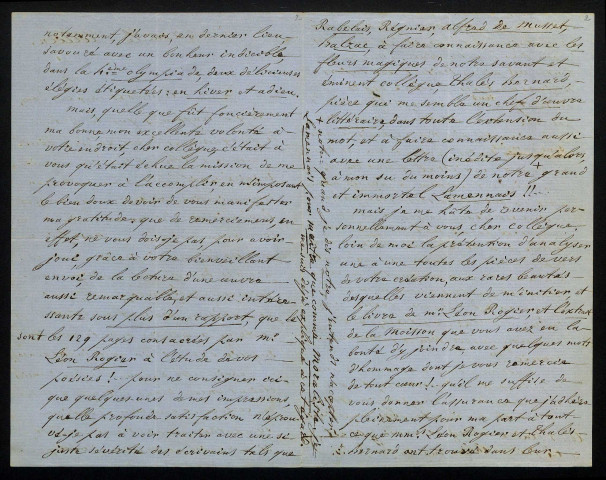 notamment, j'avais, en dernier lieu
savouré avec un bonheur indicible,
dans la 4ième olympiade, deux délicieuses
élégies étiquetées: en hiver et adieu.
mais, quelle que fût foncièrement
ma bonne mon excellente volonté à
votre endroit cher collègue, c'était à
vous qu'était échue la mission de me
provoquer à l'accomplir en m'imposant
le bien doux devoir de vous manifester
ma gratitude; que de remerciements, en
effet, ne vous dois-je pas pour avoir
joui grâce à votre bienveillant
envoi, de la lecture d'une œuvre
aussi remarquable, et aussi intéres-
sante sous plus d'un rapport, que le
sont les 129 pages consacrées par mr
Léon Rogier à l'étude de vos
poésies!.. pour ne consigner ici
que quelques unes de mes impressions,
quelle profonde satisfaction n'éprou-
vé-je pas à voir traiter avec une si
juste sévérité des écrivains tels que
2
Rabelais, Régnier alfred de Musset,
Balzac, à faire connaissance avec les
fleurs magiques de notre savant et
éminent collègue thalès Bernard,
pièce qui me semble un chef d'œuvre
littéraire, dans toute l'extension du
mot, et à faire connaissance aussi
avec une lettre (inédite jusqu'alors
à mon su du moins) de notre grand
et immortel Lamennais!!..
mais je me hâte de revenir per-
sonnellement à vous cher collègue,
loin de moi la prétention d'analyser
une à une toutes les pièces de vers
de votre création, aux rares beautés
desquelles viennent de m'initier et
le livre de mr Léon Rogier et l'extrait
de la Moisson que vous avez eu la
bonté d'y joindre, avec quelques mots
d'hommage dont je vous remercie
de tout cœur!.. qu'il me suffise de
vous donner l'assurance que j'adhère
pleinement pour ma part à tout
ce que mrs Léon Rogier et thalès
Bernard ont trouvé dans leur